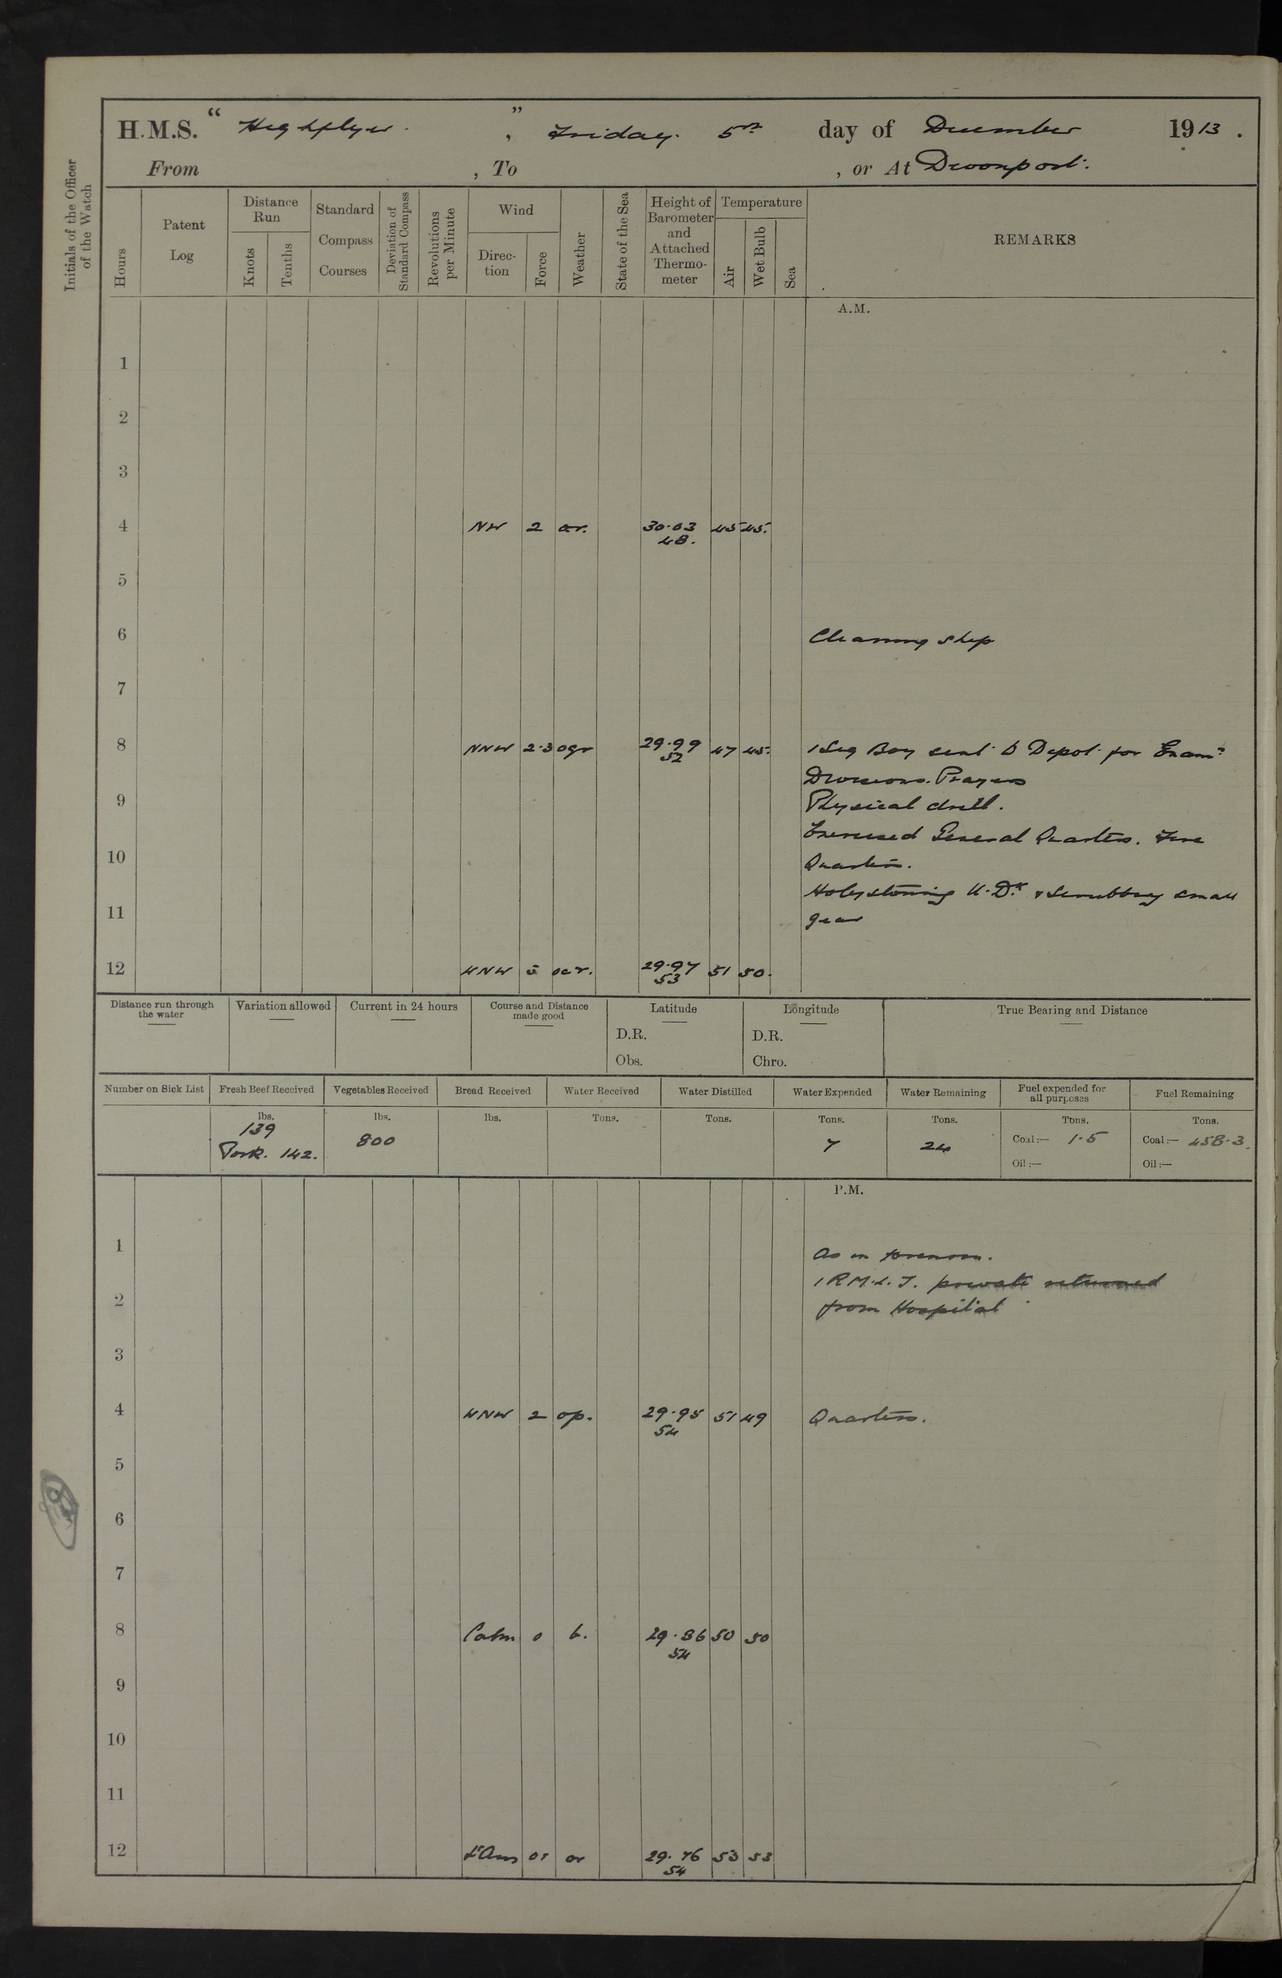 H.M.S. " Highflyer. ", Friday. 5th day of December 1913.
From , To , or At Devonport.
Initials of the Officer of the Watch
Hours
Patent Log
Distance Run
Knots
Tenths
Standard Compass Courses
Deviation of Standard Compass
Revolutions per Minute
Wind
Direction
Force
Weather
State of the Sea
Height of Barometer and Attached Thermometer
Temperature
Air
Wet Bulb
Sea
REMARKS
A.M.
1
2
3
4 NW 2 or. 30.03 45 45.
48.
5
6 Cleaning ship
7
8 NNW 2.3 ogr 29.99 47 45. 1 Sig Boy sent to Depot for Examn
52
Divisions. Prayers
9 Physical drill.
Exercised General Quarters. Fire
10 Quarters.
Holystoning U.Dk & scrubbing small
11 gear
12 WNW 5 ocr. 29.97 51 50.
53
Distance run through the water
Variation allowed
Current in 24 hours
Course and Distance made good
Latitude
D.R.
Obs.
Longitude
D.R.
Chro.
True Bearing and Distance
Number on Sick List
Fresh Beef Received
lbs.
139
Pork. 142.
Vegetables Received
lbs.
800
Bread Received
lbs.
Water Received
Tons.
Water Distilled
Tons.
Water Expended
Tons.
7
Water Remaining
Tons.
24
Fuel expended for all purposes
Tons.
Coal:— 1.5
Oil:—
Fuel Remaining
Tons.
Coal:— 458.3.
Oil:—
P.M.
1 As in forenoon.
1 R.M.L.I. private returned
2 from Hospital
3
4 WNW 2 op. 29.95 51 49 Quarters.
54
5
6
7
8 Calm 0 b. 29.86 50 50
54
9
10
11
12 Lt Airs 01 or 29.76 53 53
54